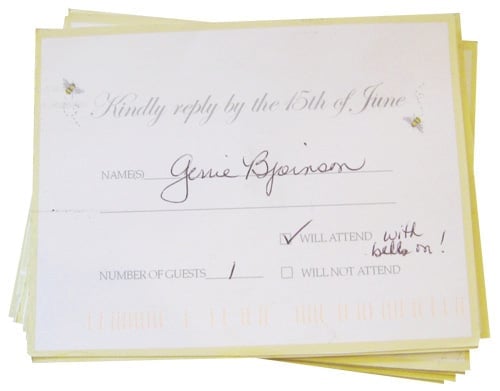 Kindly reply by the 15th of June
NAME(S) Genie Bjoinson
WILL ATTEND with
bells on!
NUMBER OF GUESTS 1 WILL NOT ATTEND